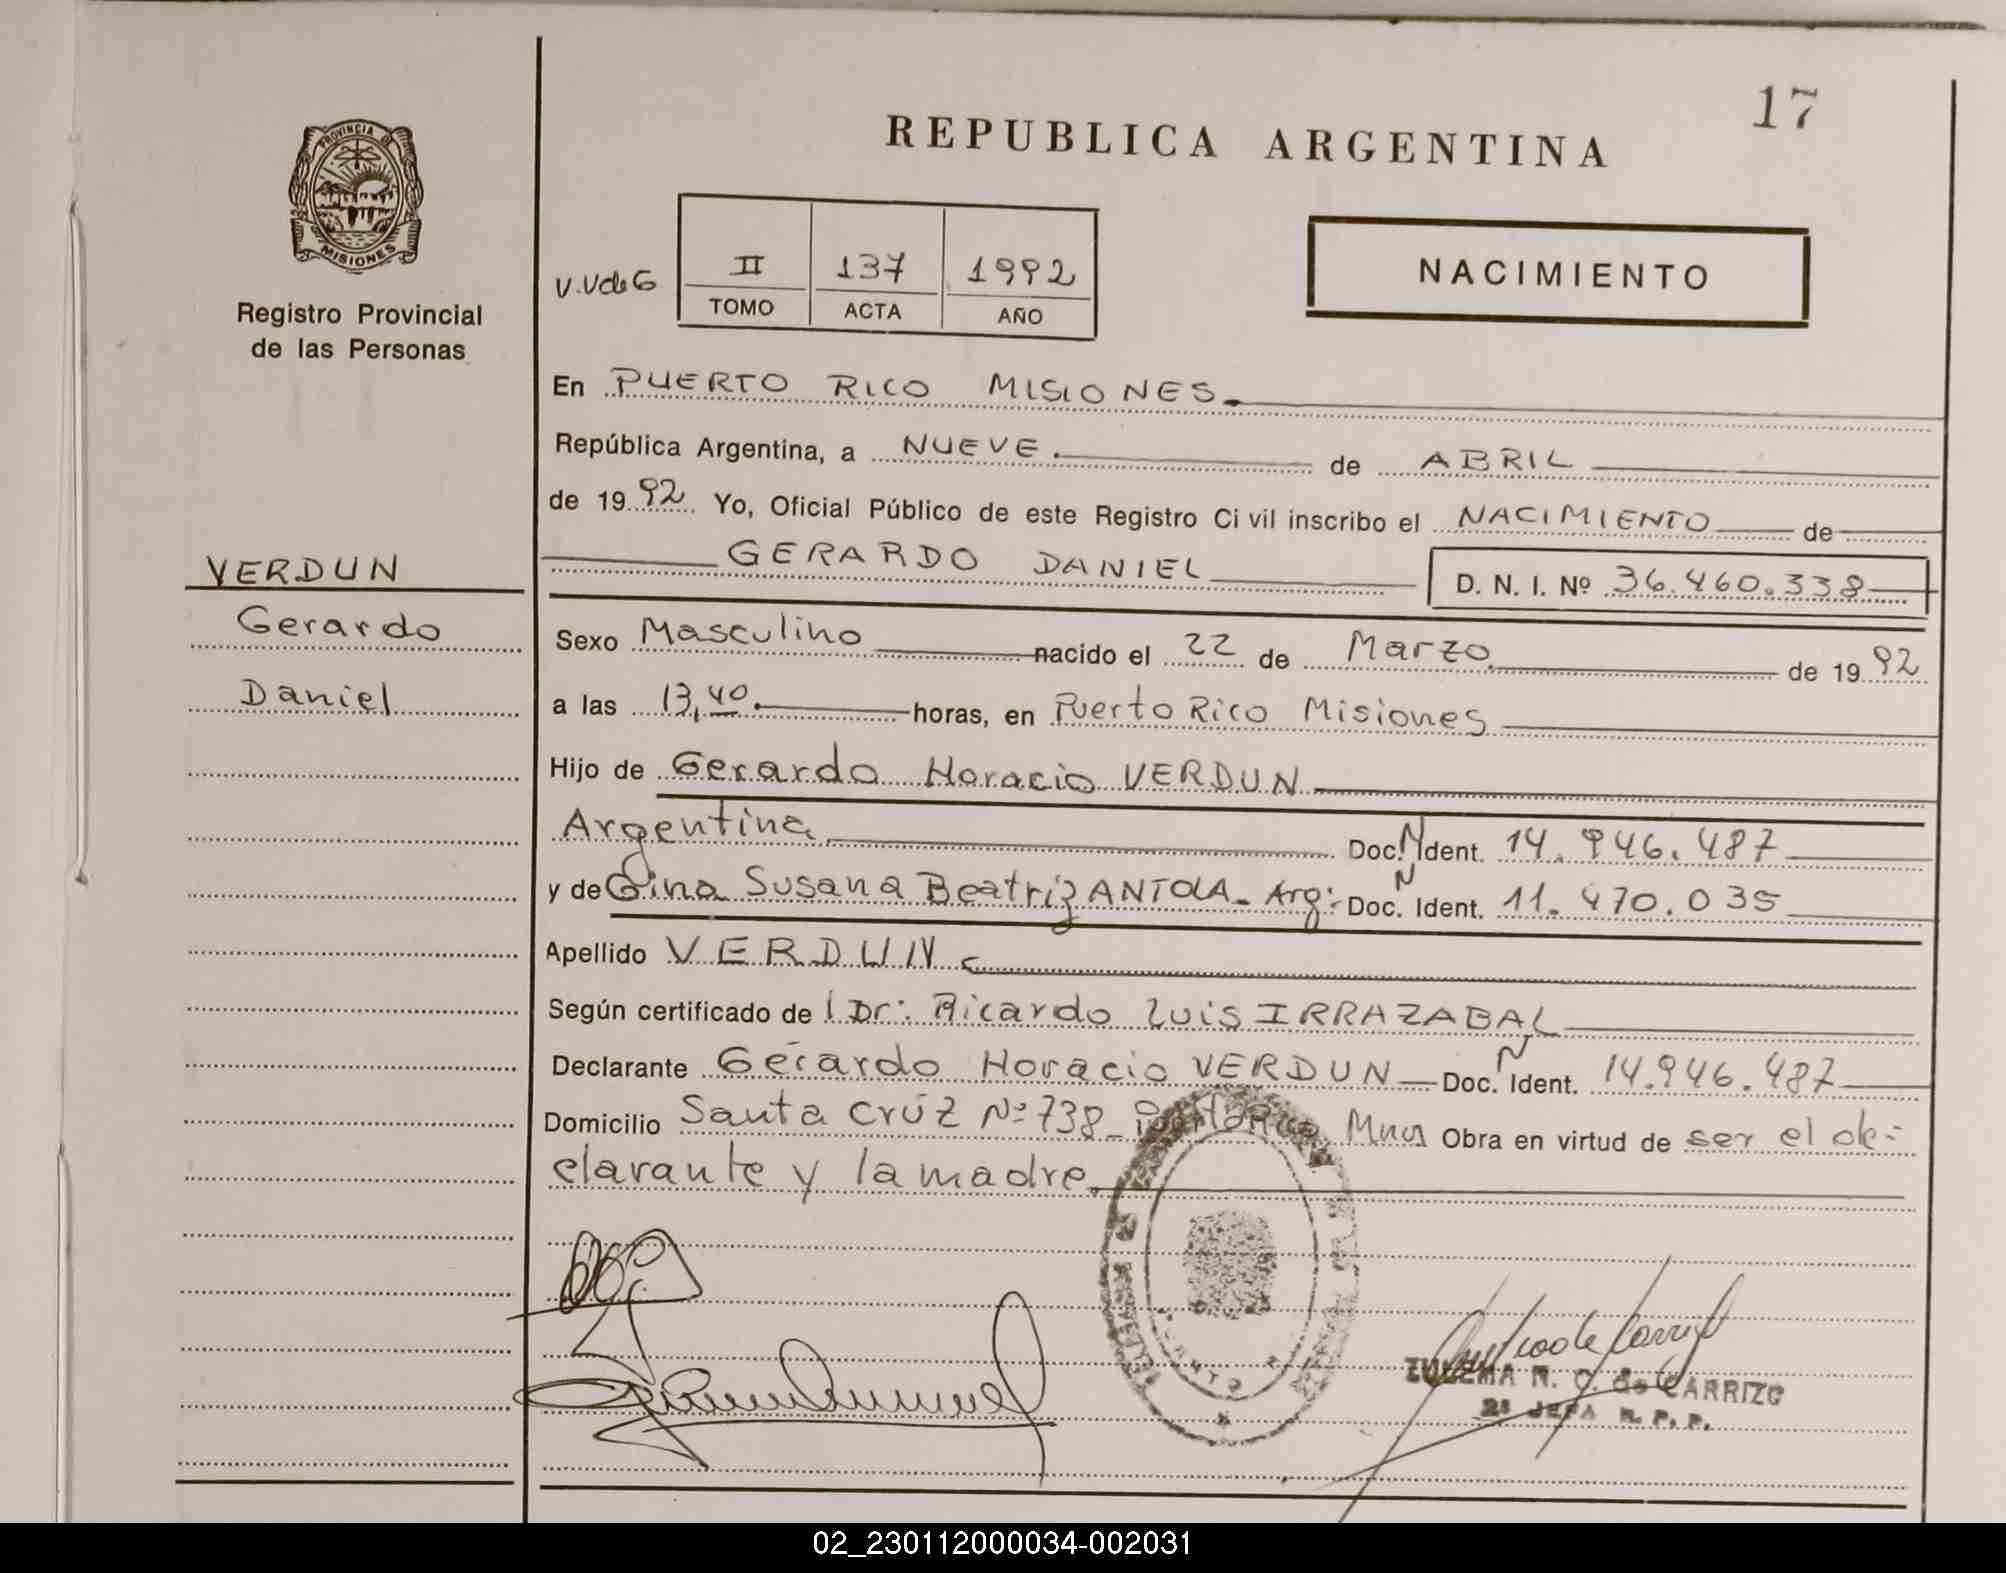 17
REPUBLICA ARGENTINA
PROVINCIA DE
MISIONES
Registro Provincial
de las Personas
V.VdeG
II 137 1992
TOMO ACTA AÑO
NACIMIENTO
En PUERTO RICO MISIONES.
República Argentina, a NUEVE. de ABRIL
de 1992 Yo, Oficial Público de este Registro Ci vil inscribo el NACIMIENTO de
GERARDO DANIEL D. N. I. Nº 36.460.338
VERDUN
Gerardo
Daniel
Sexo Masculino nacido el 22 de Marzo de 1992
a las 13,40. horas, en Puerto Rico Misiones
Hijo de Gerardo Horacio VERDUN
Argentina Doc. N Ident. 14.946.487
y de Gina Susana Beatriz ANTOLA - Arg: Doc. N Ident. 11.470.035
Apellido VERDUN
Según certificado de l Dr: Ricardo Luis IRRAZABAL
Declarante Gerardo Horacio VERDUN Doc. N Ident. 14.946.487
Domicilio Santa CrUZ Nº 738 - Mnes Obra en virtud de ser el de-
clarante y la madre.
ZULEMA R. C. de CARRIZO
2ª JEFA R. P. P.
02_230112000034-002031